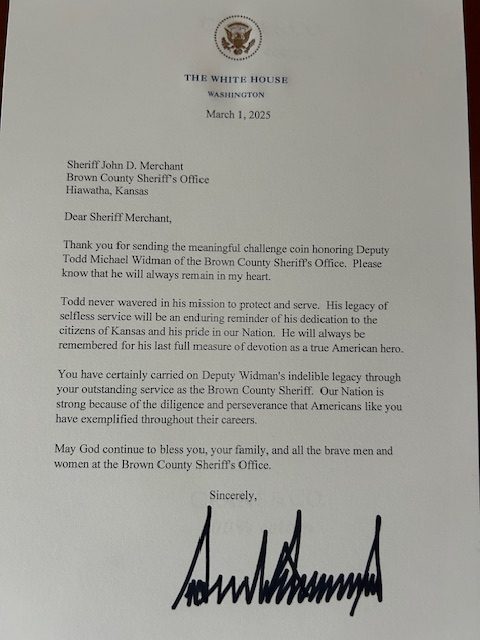 THE WHITE HOUSE
WASHINGTON
March 1, 2025
Sheriff John D. Merchant
Brown County Sheriff's Office
Hiawatha, Kansas
Dear Sheriff Merchant,
Thank you for sending the meaningful challenge coin honoring Deputy
Todd Michael Widman of the Brown County Sheriff's Office. Please
know that he will always remain in my heart.
Todd never wavered in his mission to protect and serve. His legacy of
selfless service will be an enduring reminder of his dedication to the
citizens of Kansas and his pride in our Nation. He will always be
remembered for his last full measure of devotion as a true American hero.
You have certainly carried on Deputy Widman's indelible legacy through
your outstanding service as the Brown County Sheriff. Our Nation is
strong because of the diligence and perseverance that Americans like you
have exemplified throughout their careers.
May God continue to bless you, your family, and all the brave men and
women at the Brown County Sheriff's Office.
Sincerely,